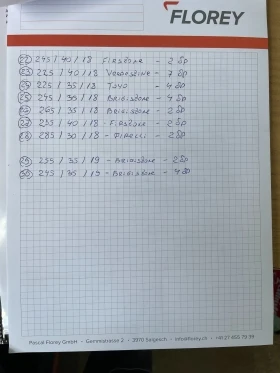 FLOREY
22 245/40/18 FIRSTONE - 2 SD
23 225/40/18 VREDESZINE - 7 SD
24 225/35/18 TOYO - 4 SD
25 245/35/18 BRIGISTONE - 4 SD
26 265/35/18 BRIGISTONE - 2 SD
27 235/40/18 - FIRSTONE - 2 SD
28 285/30/18 - PIRELLI - 2 SD
29 255/35/19 - BRIGISTONE - 2 SD
30 245/35/19 - BRIGISTONE - 4 SD
Pascal Florey GmbH - Gemmistrasse 2 - 3970 Salgesch - info@florey.ch - +41 27 455 79 39